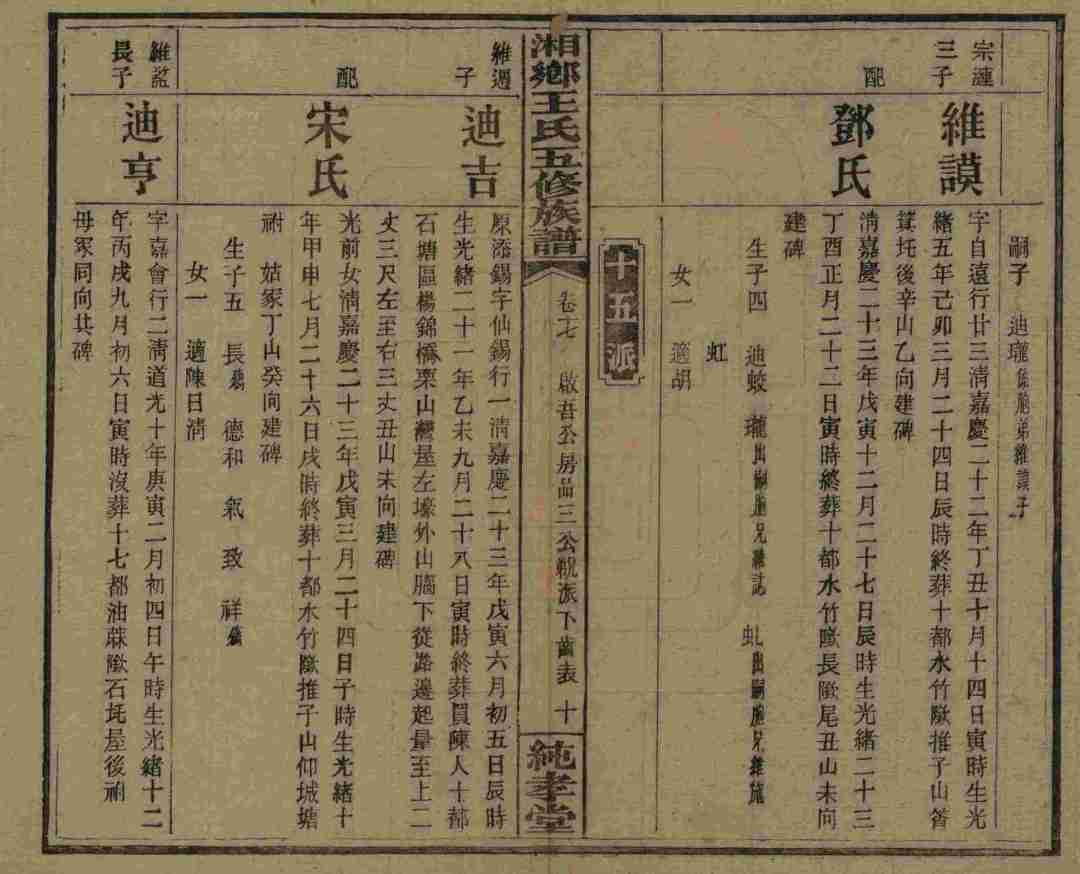 嗣子　迪瓏係胞弟維謨子
宗漣三子
維謨
字自遠行廿三淸嘉慶二十二年丁丑十月十四日寅時生光
緒五年己卯三月二十四日辰時終葬十都水竹㙜推子山
箕坵後辛山乙向建碑
配
鄧氏
淸嘉慶二十三年戊寅十二月二十七日辰時生光緒二十三
丁酉正月二十二日寅時終葬十都水竹㙜長㙜尾丑山未向
建碑
生子四　迪蛟　瓏出嗣胞兄維誌　虬出嗣胞兄維
虹
女一　適胡
十五派
湘鄉王氏五修族譜
卷七　啟吾公房品三公派下齒表　十
純孝堂
維週子
迪吉
原添錫字仙錫行一淸嘉慶二十三年戊寅六月初五日辰時
生光緒二十一年乙未九月二十八日寅時終葬買陳人十都
石塘區楊錦橋栗山灣屋左壕外山腦下從路邊起量至上二
丈三尺左至右三丈丑山未向建碑
配
宋氏
光前女淸嘉慶二十三年戊寅三月二十四日子時生光緒十
年甲申七月二十六日戌時終葬十都水竹㙜推子山仰城塘
祔　姑冢丁山癸向建碑
生子五　長殤　德和　氣致　祥殤
女一　適陳日淸
維誌長子
迪亨
字嘉會行二淸道光十年庚寅二月初四日午時生光緒十二
年丙戌九月初六日寅時沒葬十七都油蔴㙜石坵屋後祔
母冢同向共碑